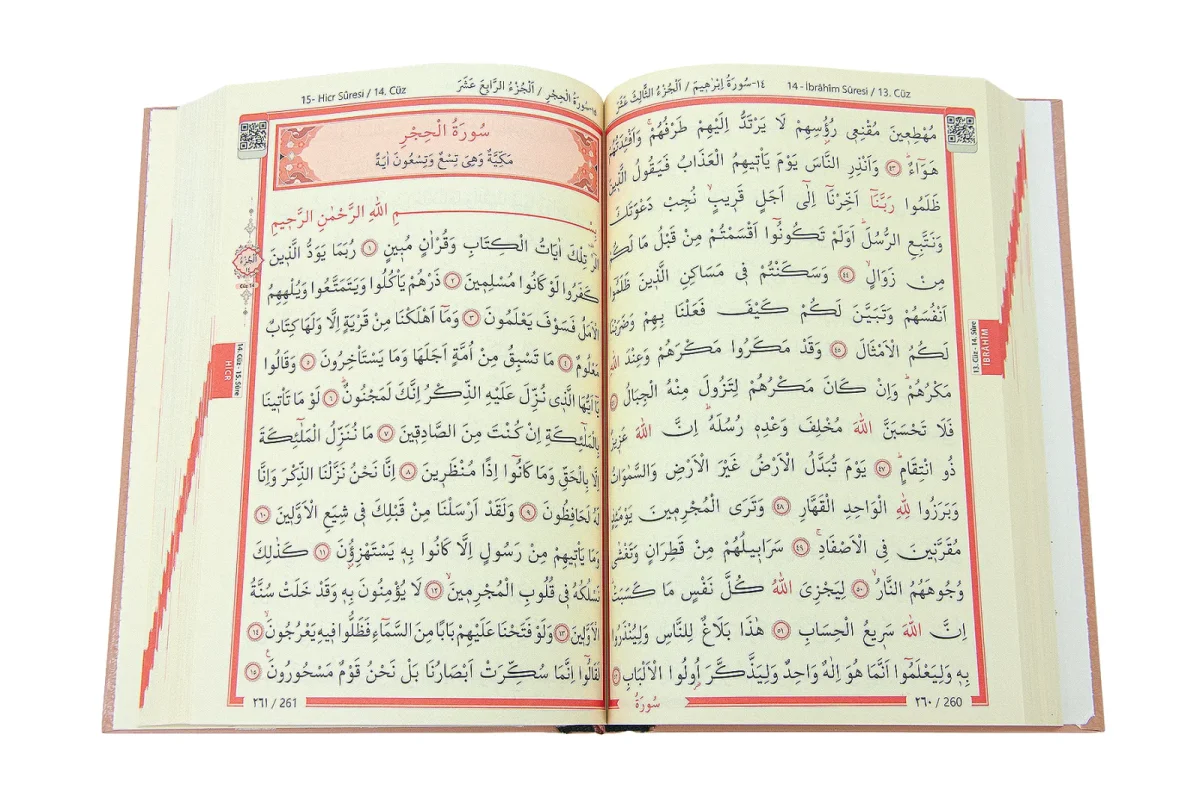 14 - İbrâhîm Sûresi / 13. Cüz
١٤-سُورَةُ اِبْرٰه۪يمَ / اَلْجُزْءُ الثَّالِثَ عَشَرَ
مُهْطِع۪ينَ مُقْنِع۪ي رُؤُسِهِمْ لَا يَرْتَدُّ اِلَيْهِمْ طَرْفُهُمْۚ وَاَفْـِٔدَتُهُمْ
هَوَٓاءٌۜ ﴿٤٣﴾ وَاَنْذِرِ النَّاسَ يَوْمَ يَأْت۪يهِمُ الْعَذَابُ فَيَقُولُ الَّذ۪ينَ
ظَلَمُوا رَبَّنَٓا اَخِّرْنَٓا اِلٰٓى اَجَلٍ قَر۪يبٍۙ نُجِبْ دَعْوَتَكَ
وَنَتَّبِعِ الرُّسُلَۜ اَوَلَمْ تَكُونُٓوا اَقْسَمْتُمْ مِنْ قَبْلُ مَا لَكُمْ
مِنْ زَوَالٍۙ ﴿٤٤﴾ وَسَكَنْتُمْ ف۪ي مَسَاكِنِ الَّذ۪ينَ ظَلَمُٓوا
اَنْفُسَهُمْ وَتَبَيَّنَ لَكُمْ كَيْفَ فَعَلْنَا بِهِمْ وَضَرَبْنَا
لَكُمُ الْاَمْثَالَ ﴿٤٥﴾ وَقَدْ مَكَرُوا مَكْرَهُمْ وَعِنْدَ اللّٰهِ
مَكْرُهُمْۜ وَاِنْ كَانَ مَكْرُهُمْ لِتَزُولَ مِنْهُ الْجِبَالُ ﴿٤٦﴾
فَلَا تَحْسَبَنَّ اللّٰهَ مُخْلِفَ وَعْدِه۪ رُسُلَهُۜ اِنَّ اللّٰهَ عَز۪يزٌ
ذُو انْتِقَامٍۜ ﴿٤٧﴾ يَوْمَ تُبَدَّلُ الْاَرْضُ غَيْرَ الْاَرْضِ وَالسَّمٰوَاتُ
وَبَرَزُوا لِلّٰهِ الْوَاحِدِ الْقَهَّارِ ﴿٤٨﴾ وَتَرَى الْمُجْرِم۪ينَ يَوْمَئِذٍ
مُقَرَّن۪ينَ فِي الْاَصْفَادِۚ ﴿٤٩﴾ سَرَاب۪يلُهُمْ مِنْ قَطِرَانٍ وَتَغْشٰى
وُجُوهَهُمُ النَّارُۙ ﴿٥٠﴾ لِيَجْزِيَ اللّٰهُ كُلَّ نَفْسٍ مَا كَسَبَتْۜ
اِنَّ اللّٰهَ سَر۪يعُ الْحِسَابِ ﴿٥١﴾ هٰذَا بَلَاغٌ لِلنَّاسِ وَلِيُنْذَرُوا
بِه۪ وَلِيَعْلَمُٓوا اَنَّمَا هُوَ اِلٰهٌ وَاحِدٌ وَلِيَذَّكَّرَ اُو۬لُوا الْاَلْبَابِ ﴿٥٢﴾
٢٦٠ / 260
سُورَةُ
13. Cüz - 14. Sûre
İBRÂHÎM
15- Hicr Sûresi / 14. Cüz
١٥-سُورَةُ الْحِجْرِ / اَلْجُزْءُ الرَّابِعَ عَشَرَ
سُورَةُ الْحِجْرِ
مَكِّيَّةٌ وَهِيَ تِسْعٌ وَتِسْعُونَ اٰيَةً
بِسْمِ اللّٰهِ الرَّحْمٰنِ الرَّح۪يمِ
الٓرٰ۠ تِلْكَ اٰيَاتُ الْكِتَابِ وَقُرْاٰنٍ مُب۪ينٍ ﴿١﴾ رُبَمَا يَوَدُّ الَّذ۪ينَ
كَفَرُوا لَوْ كَانُوا مُسْلِم۪ينَ ﴿٢﴾ ذَرْهُمْ يَأْكُلُوا وَيَتَمَتَّعُوا وَيُلْهِهِمُ
الْاَمَلُ فَسَوْفَ يَعْلَمُونَ ﴿٣﴾ وَمَٓا اَهْلَكْنَا مِنْ قَرْيَةٍ اِلَّا وَلَهَا كِتَابٌ
مَعْلُومٌ ﴿٤﴾ مَا تَسْبِقُ مِنْ اُمَّةٍ اَجَلَهَا وَمَا يَسْتَأْخِرُونَ ﴿٥﴾ وَقَالُوا
يَٓا اَيُّهَا الَّذ۪ي نُزِّلَ عَلَيْهِ الذِّكْرُ اِنَّكَ لَمَجْنُونٌۜ ﴿٦﴾ لَوْ مَا تَأْت۪ينَا
بِالْمَلٰٓئِكَةِ اِنْ كُنْتَ مِنَ الصَّادِق۪ينَ ﴿٧﴾ مَا نُنَزِّلُ الْمَلٰٓئِكَةَ
اِلَّا بِالْحَقِّ وَمَا كَانُٓوا اِذًا مُنْظَر۪ينَ ﴿٨﴾ اِنَّا نَحْنُ نَزَّلْنَا الذِّكْرَ وَاِنَّا
لَهُ لَحَافِظُونَ ﴿٩﴾ وَلَقَدْ اَرْسَلْنَا مِنْ قَبْلِكَ ف۪ي شِيَعِ الْاَوَّل۪ينَ ﴿١٠﴾
وَمَا يَأْت۪يهِمْ مِنْ رَسُولٍ اِلَّا كَانُوا بِه۪ يَسْتَهْزِؤُ۫نَ ﴿١١﴾ كَذٰلِكَ
نَسْلُكُهُ ف۪ي قُلُوبِ الْمُجْرِم۪ينَۙ ﴿١٢﴾ لَا يُؤْمِنُونَ بِه۪ وَقَدْ خَلَتْ سُنَّةُ
الْاَوَّل۪ينَ ﴿١٣﴾ وَلَوْ فَتَحْنَا عَلَيْهِمْ بَابًا مِنَ السَّمَٓاءِ فَظَلُّوا ف۪يهِ يَعْرُجُونَۙ ﴿١٤﴾
لَقَالُٓوا اِنَّمَا سُكِّرَتْ اَبْصَارُنَا بَلْ نَحْنُ قَوْمٌ مَسْحُورُونَ۟ ﴿١٥﴾
٢٦١ / 261
اَلْجُزْءُ
١٤
Cüz 14
14. Cüz - 15. Sûre
HİCR